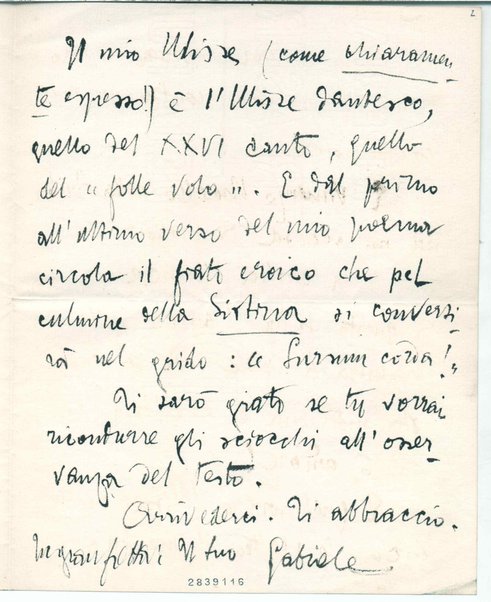 2
Il mio Ulisse (come chiaramen-
te espresso!) è l'Ulisse dantesco,
quello del XXVI canto, quello
del "folle volo". E dal primo
all'ultimo verso del mio poema
circola il fiato eroico che pel
culmine della Sistina si converti-
rà nel grido: "Sursum corda!"
Ti sarò grato se tu vorrai
ricondurre gli sciocchi all'osser-
vanza del testo.
Arrivederci. Ti abbraccio.
In gran fretta: Il tuo Gabriele
2839116